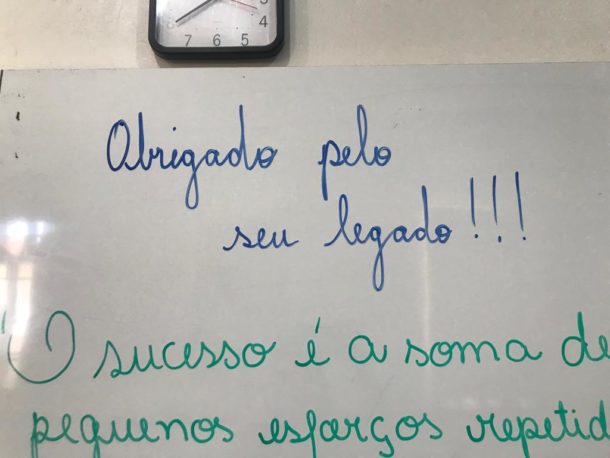 3
8 4
7 6 5
Obrigado pelo
seu legado!!!
"O sucesso é a soma de
pequenos esforços repetid